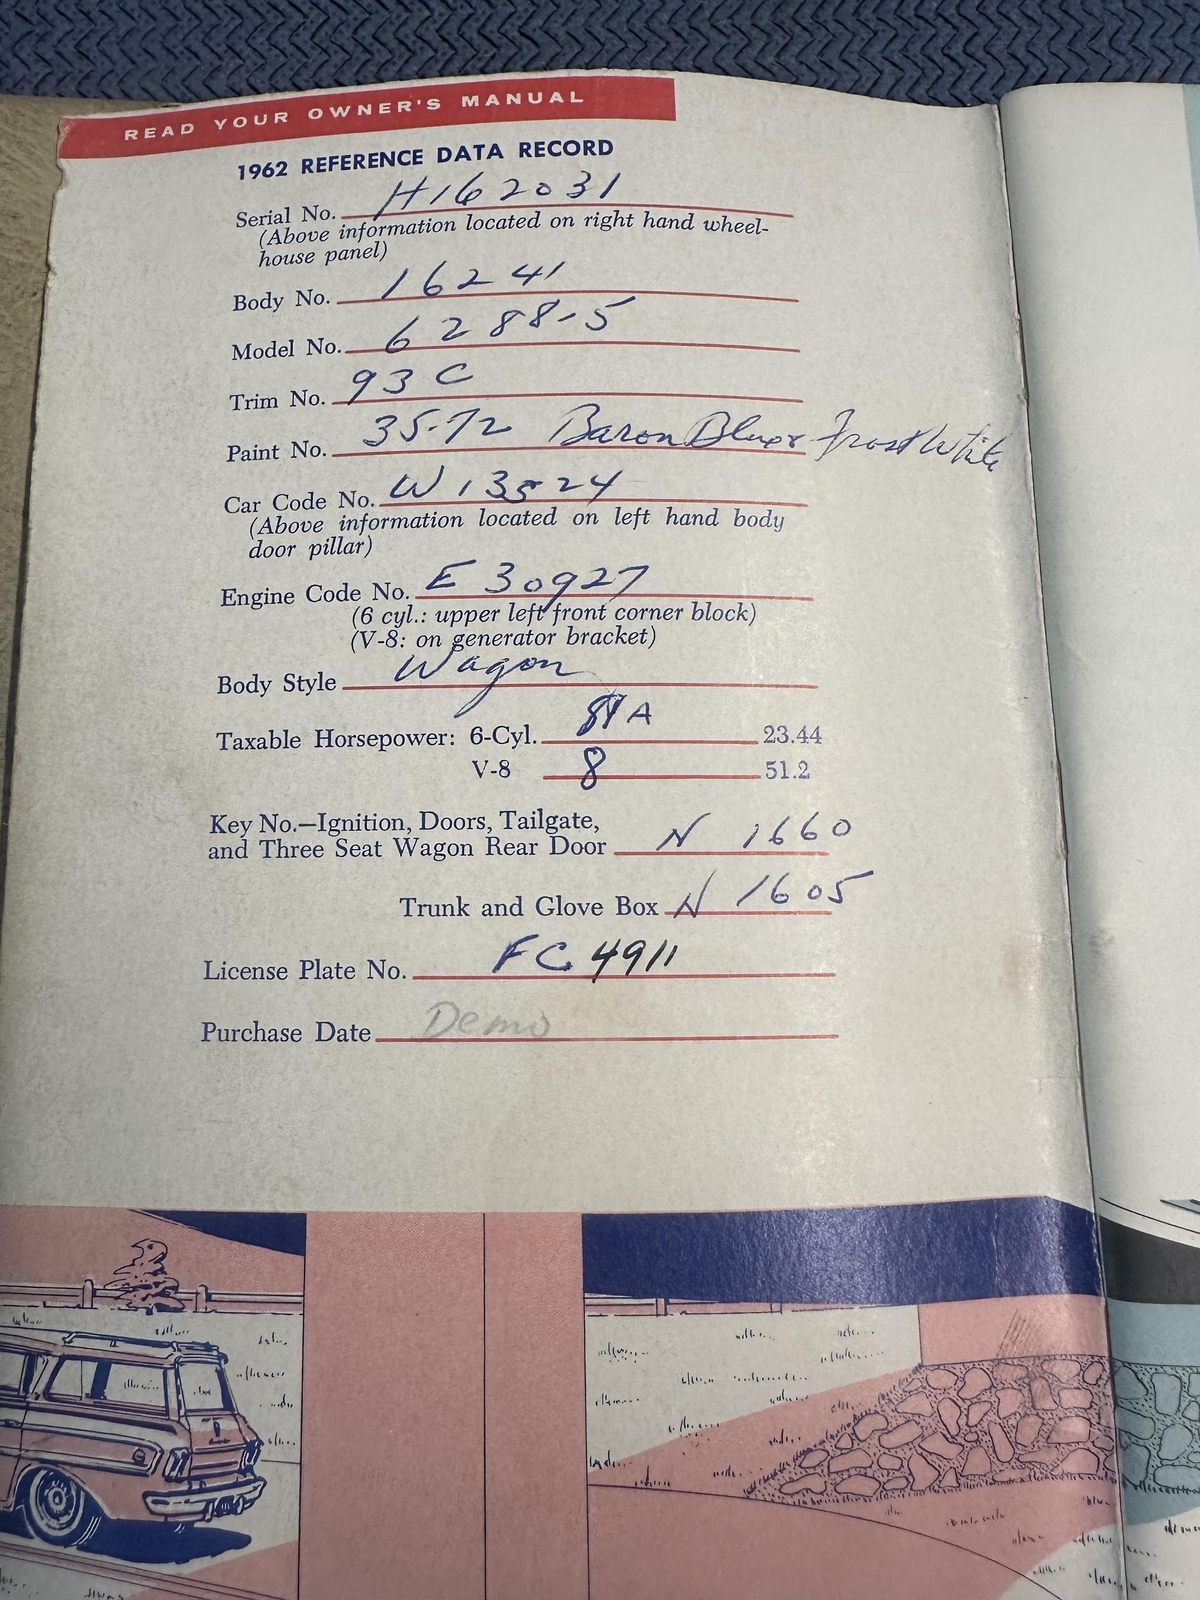 READ YOUR OWNER'S MANUAL
1962 REFERENCE DATA RECORD
Serial No. H162031
(Above information located on right hand wheel-
house panel)
Body No. 16241
Model No. 6288-5
Trim No. 93C
Paint No. 35-72 Baron Blue Frost White
Car Code No. W13524
(Above information located on left hand body
door pillar)
Engine Code No. E30927
(6 cyl.: upper left front corner block)
(V-8: on generator bracket)
Body Style Wagon
Taxable Horsepower: 6-Cyl. A 23.44
V-8 8 51.2
Key No.—Ignition, Doors, Tailgate,
and Three Seat Wagon Rear Door N 1660
Trunk and Glove Box N 1605
License Plate No. FC 4911
Purchase Date Demo